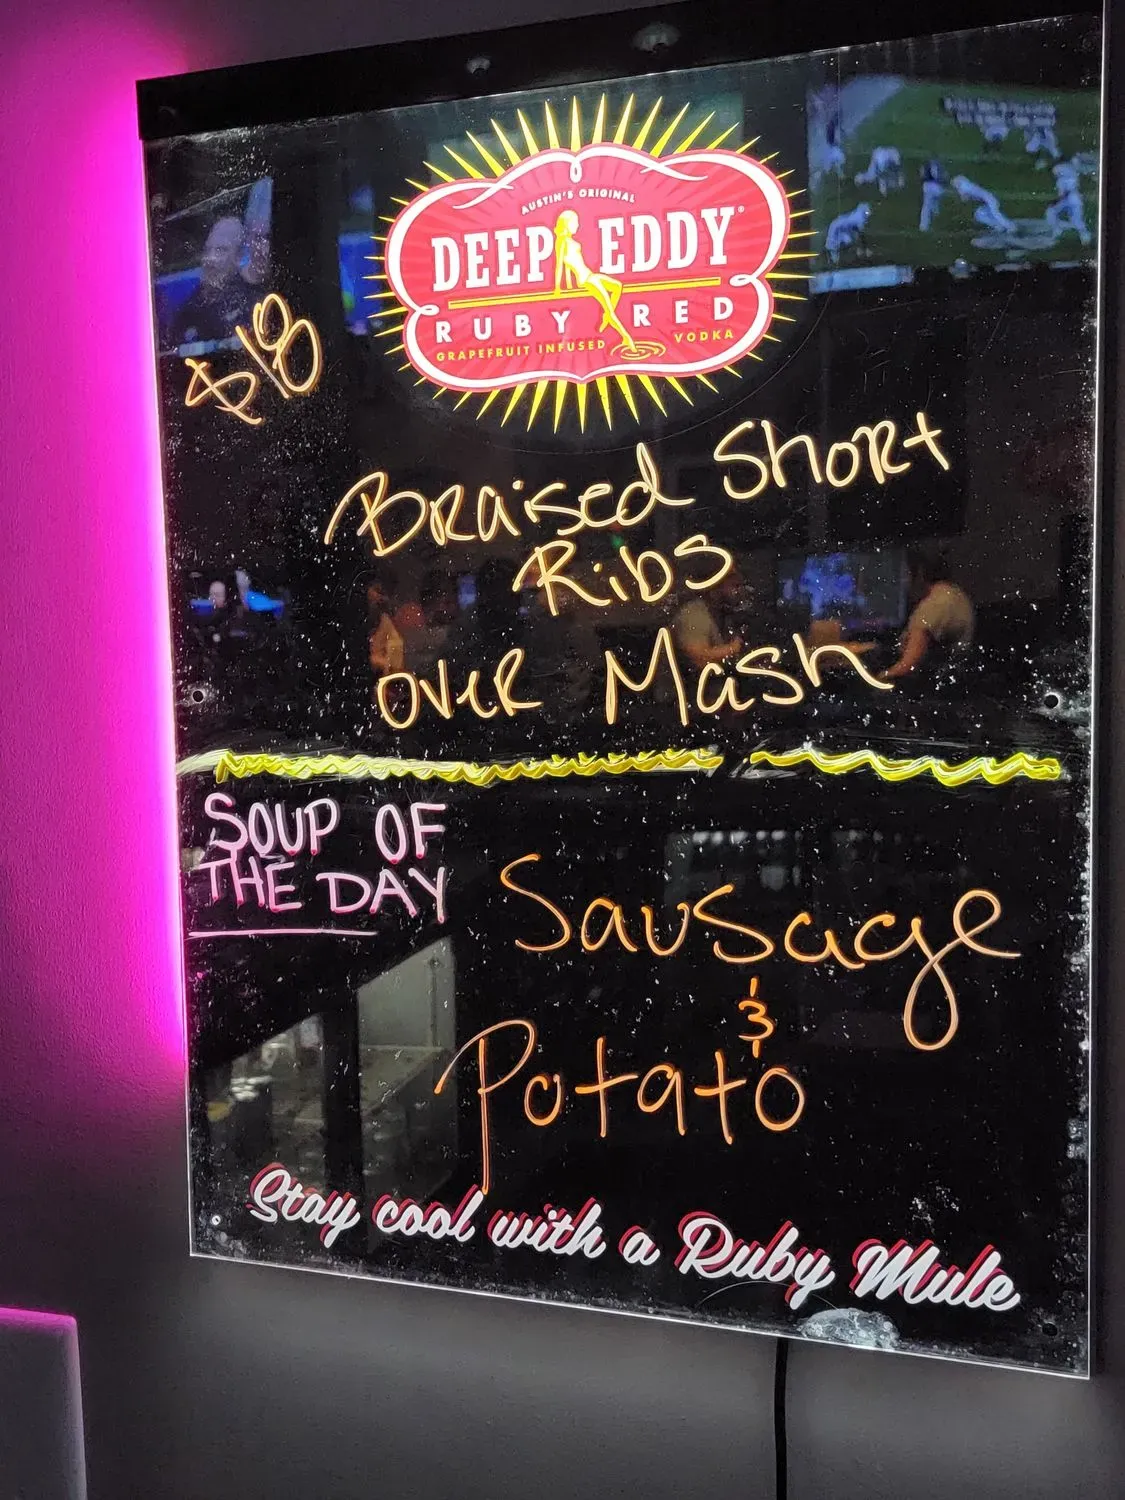 AUSTIN'S ORIGINAL
DEEP EDDY®
RUBY RED
GRAPEFRUIT INFUSED VODKA
$18
Braised Short
Ribs
over Mash
SOUP OF
THE DAY
Sausage
&
Potato
Stay cool with a Ruby Mule